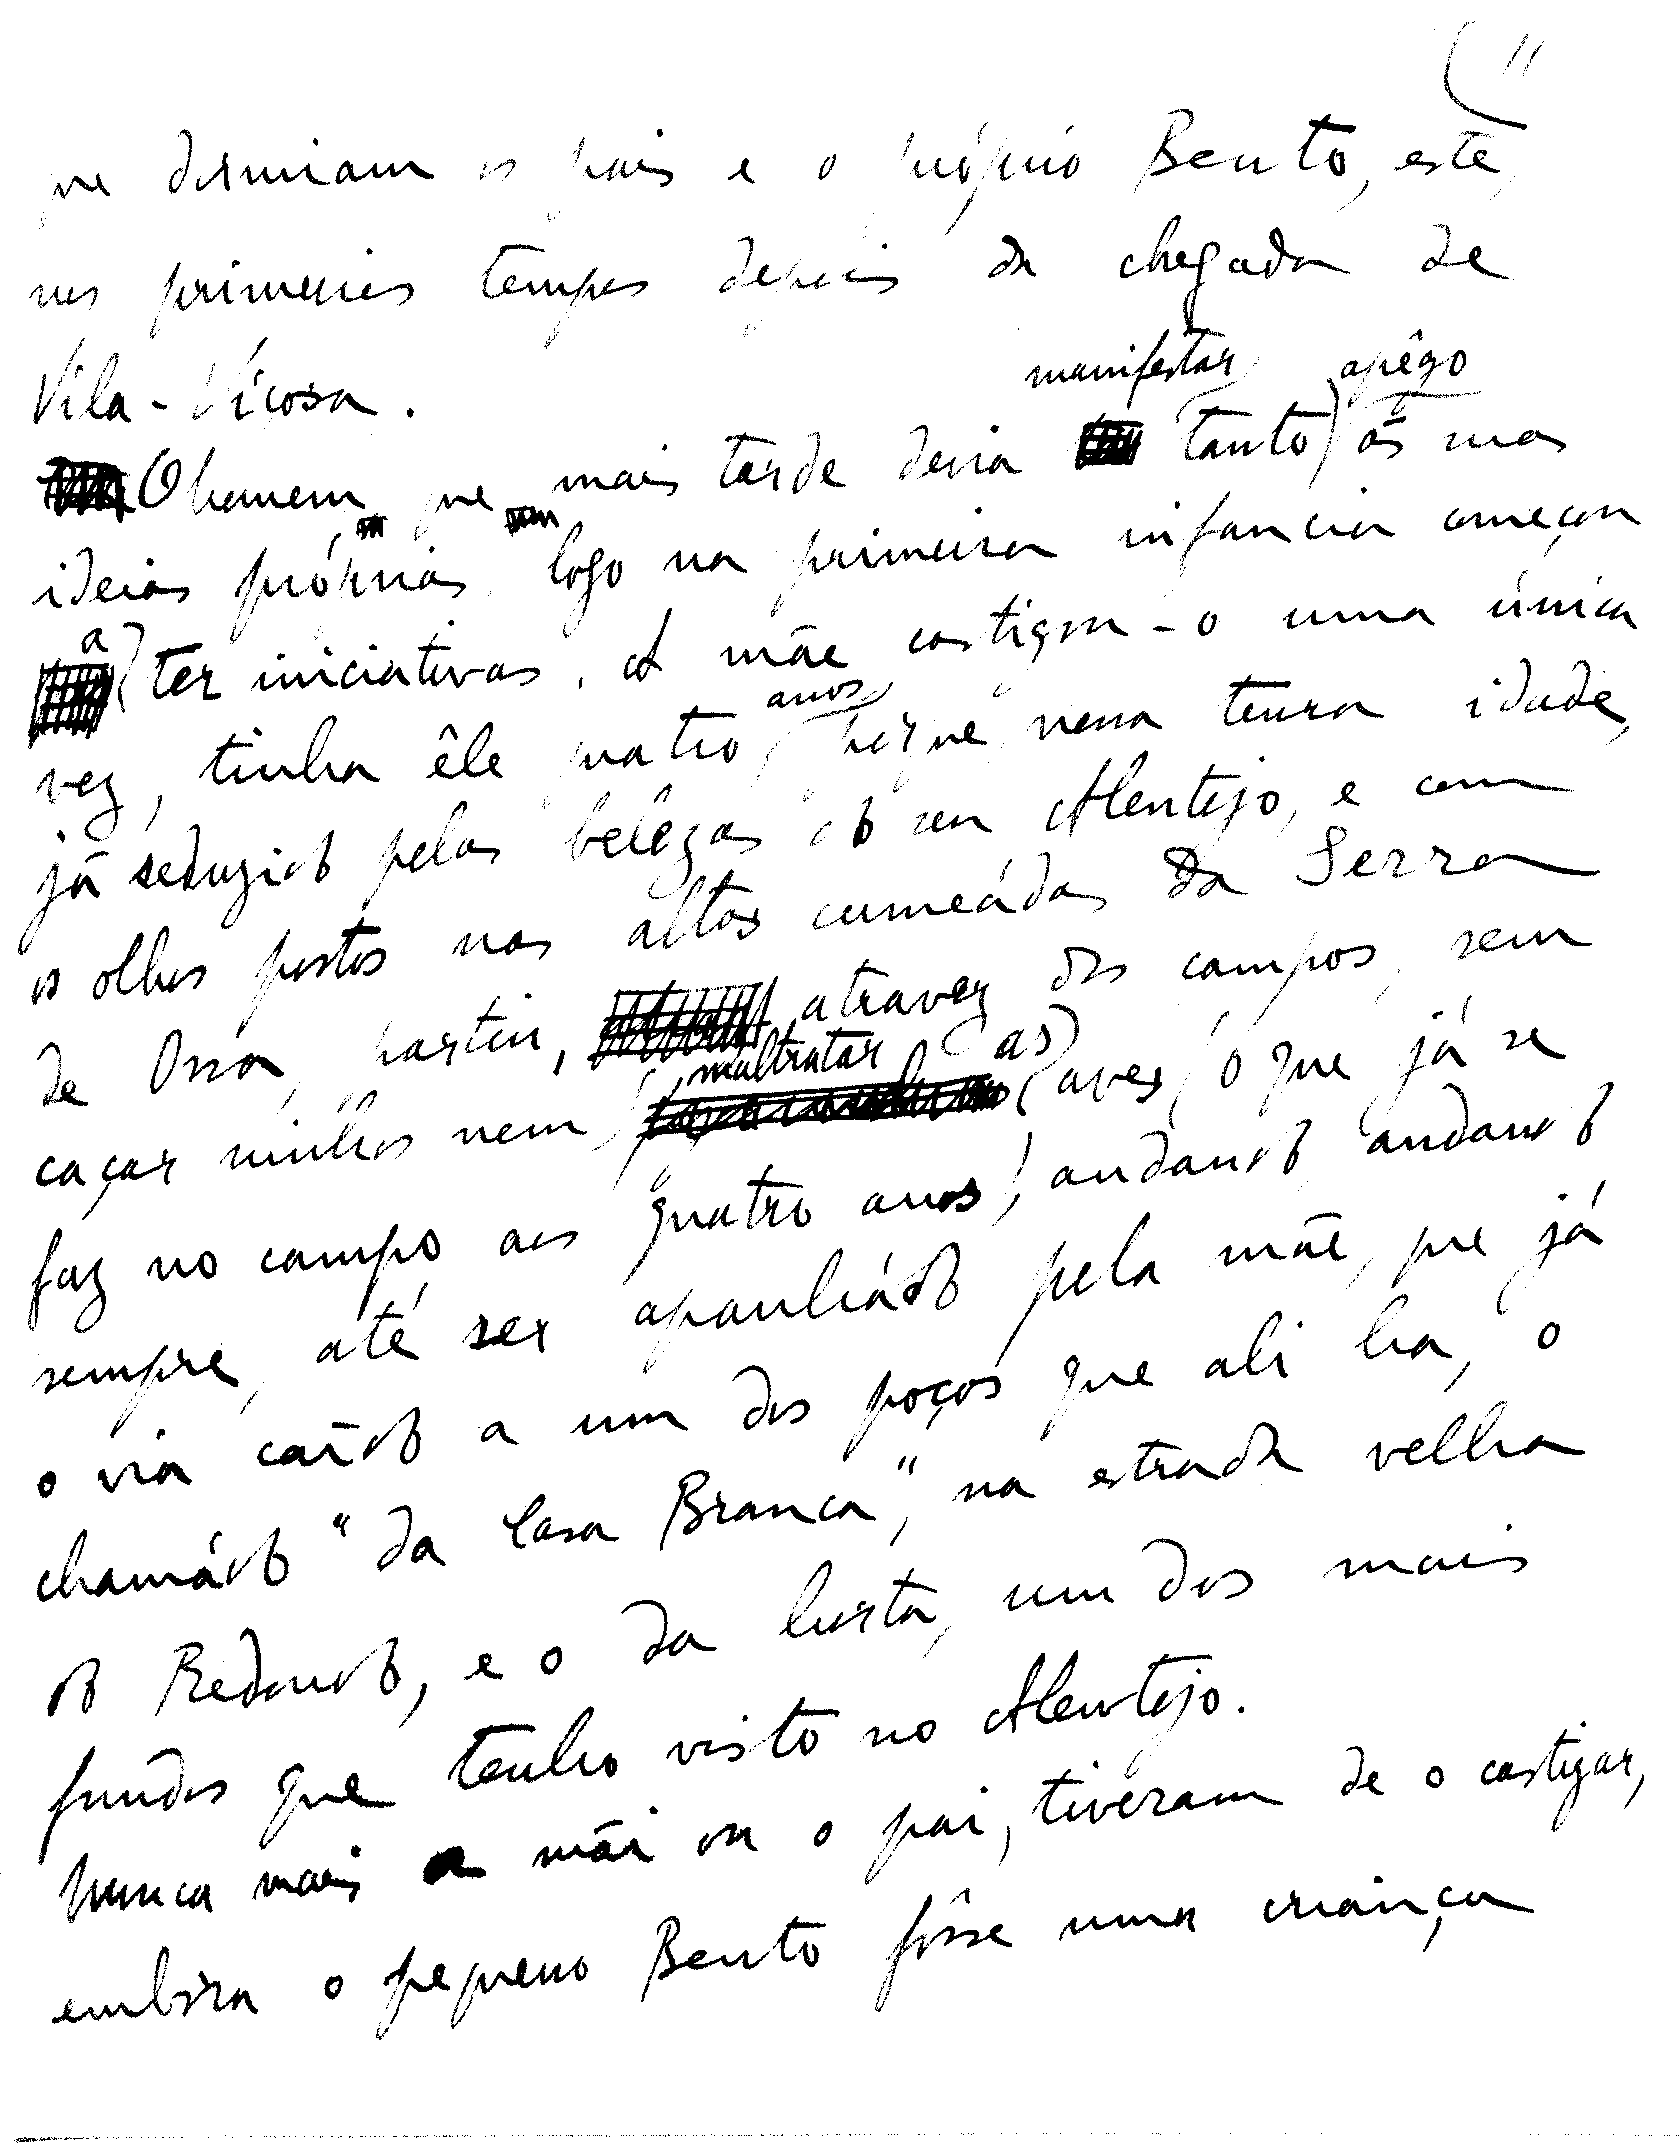 11
que dormiam os pais e o próprio Bento, este,
nos primeiros tempos depois da chegada de
Vila-Viçosa.
manifestar apêgo
O homem, que mais tarde devia tanto ás suas
ideias próprias, logo na primeira infancia começou
a ter iniciativas. A mãe castigou-o uma única
anos
vez, tinha êle quatro, porque, nessa tenra idade,
já seduzido pelas belêzas do seu Alentejo, e com
os olhos postos nas altas cumeádas da Serra
de Ossa, partiu, atravez dos campos, sem
maltratar as
caçar ninhos nem aves, o que já se
faz no campo aos quatro anos, andando, andando
sempre, até ser apanhádo pela mãe, que já
o via caído a um dos poços que ali ha, o
chamádo "da Casa Branca", na estrada velha
do Redondo, e o da horta, um dos mais
fundos que tenho visto no Alentejo.
Nunca mais a mãi ou o pai, tiveram de o castigar,
embora o pequeno Bento fôsse uma criança